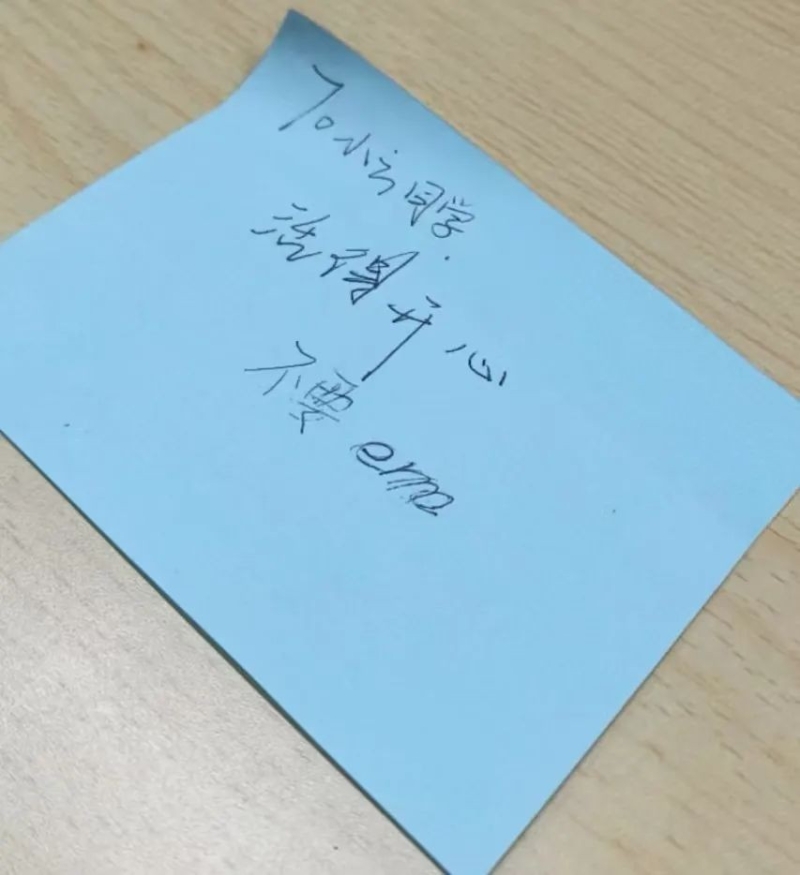 70小云同学.
活得开心
不要 emo